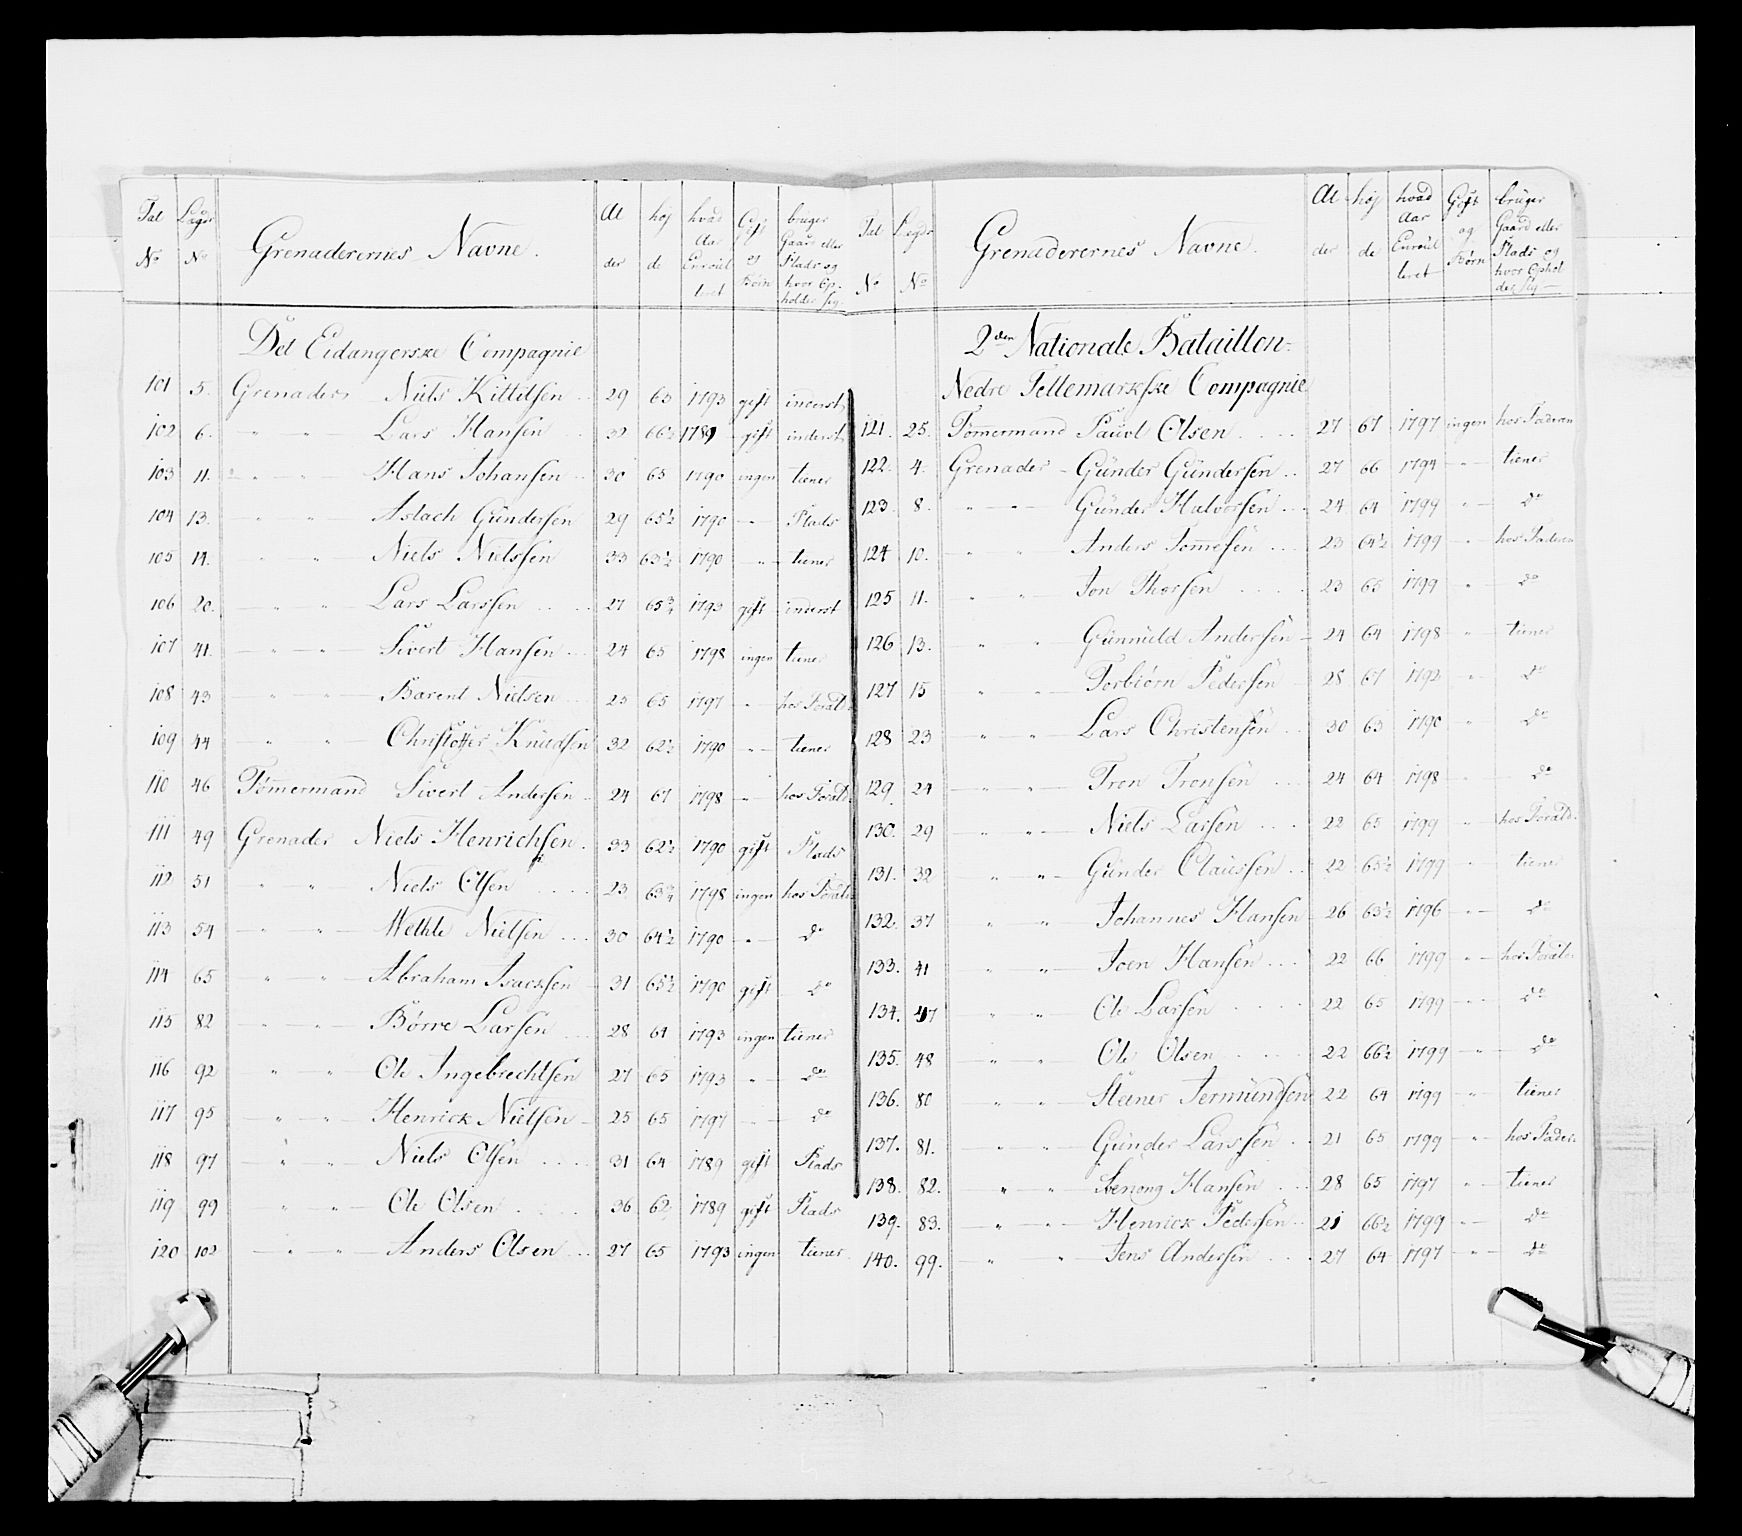 Tal No | Lægds No | Grenaderernes Navne. | Al der | høj de | hvad Aar Enroul leret | Gift og Børn | bruger Gaard eller Plads og hvor Op- holder sig.
Det Eidangerske Compagnie
101 | 5. | Grenader Niels Kittilsen | 29 | 63 | 1793 | gift | inderst
102 | 6. | " " Lars Hansen | 32 | 66½ | 1789 | gift | inderst
103 | 11. | " " Hans Johansen | 30 | 65 | 1790 | ingen | tiener
104 | 13. | " " Aslach Gundersen | 29 | 65½ | 1790 | " | Plads
105 | 14. | " " Niels Nielssen | 33 | 63½ | 1790 | " | tiener
106 | 20. | " " Lars Larssen | 27 | 65¾ | 1793 | gift | inderst
107 | 41. | " " Sivert Hansen | 24 | 65 | 1798 | ingen | tiener
108 | 43 | " " Barent Nielsen | 25 | 65 | 1797 | " | hos Foræld.
109 | 44 | " " Christoffer Knudsen | 32 | 62½ | 1790 | " | tiener
110 | 46 | Tømermand Sivert Andersen | 24 | 67 | 1798 | " | hos Foræld.
111 | 49 | Grenader Niels Henrichsen | 33 | 62½ | 1790 | gift | Plads
112 | 51 | " " Niels Olsen | 23 | 63¾ | 1798 | ingen | hos Foræld.
113 | 54 | " " Welkle Nielsen | 30 | 64½ | 1790 | " | do
114 | 65 | " " Abraham Isacksen | 31 | 65½ | 1790 | gift | do
115 | 82 | " " Børre Larsen | 28 | 64 | 1793 | ingen | tiener
116 | 92 | " " Ole Ingebrechtsen | 27 | 65 | 1793 | " | do
117 | 95 | " " Henrick Nielsen | 25 | 65 | 1797 | " | do
118 | 97 | " " Niels Olsen | 31 | 64 | 1789 | gift | Plads
119 | 99 | " " Ole Olsen | 36 | 62 | 1789 | gift | Plads
120 | 102 | " " Anders Olsen | 27 | 65 | 1793 | ingen | tiener
Tal No | Lægds No | Grenaderernes Navne. | Al der | høj de | hvad Aar Enroul leret | Gift og Børn | bruger Gaard eller Plads og hvor Ophol der sig
2den Nationale Bataillon
Nedre Tellemarkske Compagnie
121. | 25. | Tømermand Pauvl Olsen | 27 | 67 | 1797 | ingen | hos Faderen
122. | 4. | Grenader Gunder Gundersen | 27 | 66 | 1794 | " | tiener
123. | 8. | " " Gunder Halvorsen | 24 | 64 | 1799 | " | do
124 | 10. | " " Anders Tomesen | 23 | 64½ | 1799 | " | hos Faderen
125 | 11. | " " Jon Thorsen | 23 | 65 | 1799 | " | do
126 | 13. | " " Gunnuld Andersen | 24 | 64 | 1798 | " | tiener
127 | 15 | " " Torbiørn Pedersen | 28 | 67 | 1792 | " | do
128 | 23 | " " Lars Christensen | 30 | 63 | 1790 | " | do
129. | 24 | " " Tron Tronsen | 24 | 64 | 1798 | " | do
130. | 29 | " " Niels Larsen | 22 | 65 | 1799 | " | hos Foræld.
131. | 32 | " " Gunder Claussen | 22 | 65½ | 1799 | " | tiener
132. | 37 | " " Johannes Hansen | 26 | 63½ | 1796 | " | do
133. | 41 | " " Joen Hansen | 22 | 66 | 1799 | " | hos Foræld.
134. | 47 | " " Ole Larsen | 22 | 65 | 1799 | " | do
135. | 48 | " " Ole Olsen | 22 | 66½ | 1799 | " | do
136. | 80 | " " Steener Jermundsen | 22 | 64 | 1799 | " | tiener
137. | 81. | " " Gunder Larssen | 21 | 65 | 1799 | " | hos Fader.
138. | 82. | " " Svenong Hansen | 28 | 65 | 1797 | " | tiener
139. | 83. | " " Henrick Pedersen | 21 | 66½ | 1799 | " | do
140. | 99. | " " Jens Andersen | 27 | 64 | 1797 | " | do